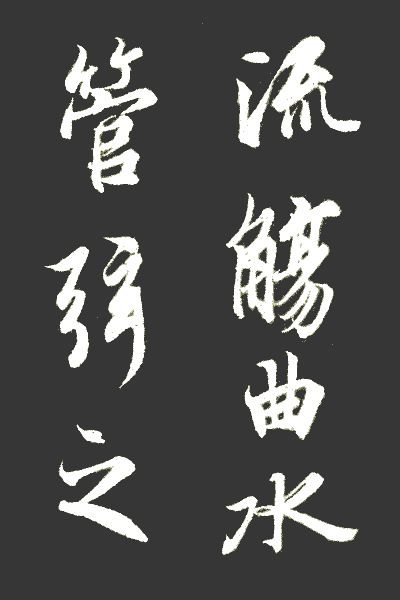 流觴曲水
管弦之